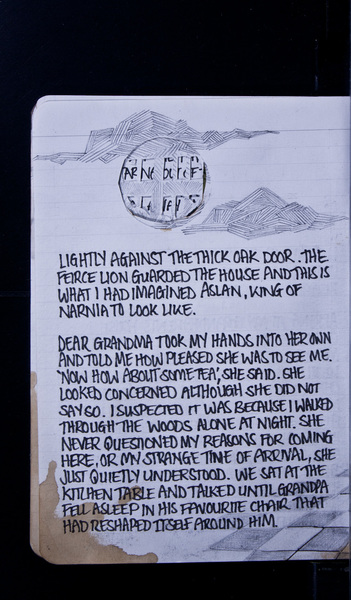 LIGHTLY AGAINST THE THICK OAK DOOR. THE
FEIRCE LION GUARDED THE HOUSE AND THIS IS
WHAT I HAD IMAGINED ASLAN, KING OF
NARNIA TO LOOK LIKE.
DEAR GRANDMA TOOK MY HANDS INTO HER OWN
AND TOLD ME HOW PLEASED SHE WAS TO SEE ME.
'NOW HOW ABOUT SOME TEA', SHE SAID. SHE
LOOKED CONCERNED ALTHOUGH SHE DID NOT
SAY SO. I SUSPECTED IT WAS BECAUSE I WALKED
THROUGH THE WOODS ALONE AT NIGHT. SHE
NEVER QUESTIONED MY REASONS FOR COMING
HERE, OR MY STRANGE TIME OF ARRIVAL, SHE
JUST QUIETLY UNDERSTOOD. WE SAT AT THE
KITCHEN TABLE AND TALKED UNTIL GRANDPA
FELL ASLEEP IN HIS FAVOURITE CHAIR THAT
HAD RESHAPED ITSELF AROUND HIM.